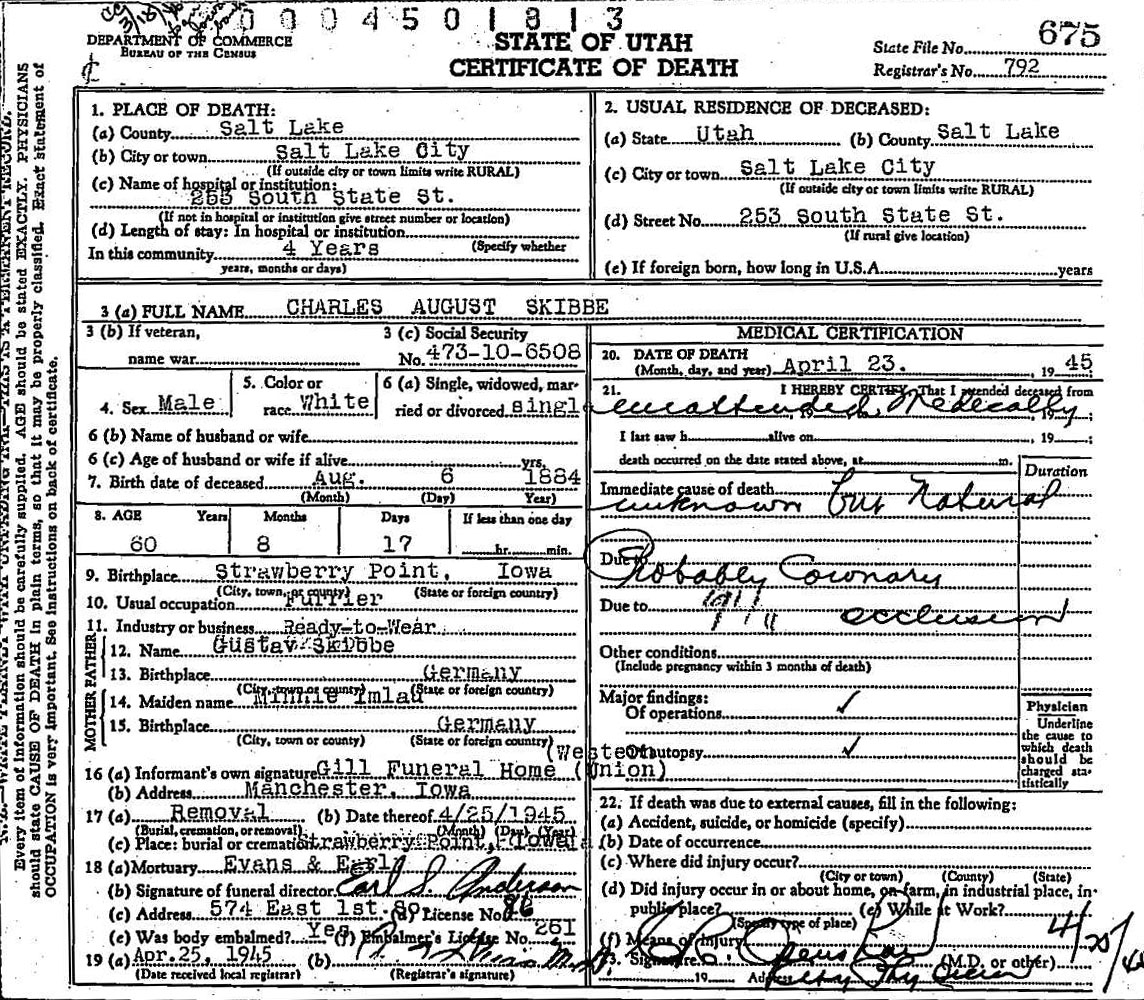 0 0 0 4 5 0 1 8 1 3
DEPARTMENT OF COMMERCE
BUREAU OF THE CENSUS
STATE OF UTAH
CERTIFICATE OF DEATH
State File No. 675
Registrar's No. 792
1. PLACE OF DEATH:
(a) County Salt Lake
(b) City or town Salt Lake City
(If outside city or town limits write RURAL)
(c) Name of hospital or institution:
253 South State St.
(If not in hospital or institution give street number or location)
(d) Length of stay: In hospital or institution
In this community 4 Years (Specify whether
years, months or days)
2. USUAL RESIDENCE OF DECEASED:
(a) State Utah (b) County Salt Lake
(c) City or town Salt Lake City
(If outside city or town limits write RURAL)
(d) Street No. 253 South State St.
(If rural give location)
(e) If foreign born, how long in U.S.A. years
3 (a) FULL NAME CHARLES AUGUST SKIBBE
3 (b) If veteran, name war
3 (c) Social Security No. 473-10-6508
4. Sex Male
5. Color or race White
6 (a) Single, widowed, married or divorced singl
6 (b) Name of husband or wife
6 (c) Age of husband or wife if alive yrs.
7. Birth date of deceased Aug. 6 1884
(Month) (Day) Year)
8. AGE Years Months Days If less than one day
60 8 17 hr. min.
9. Birthplace Strawberry Point, Iowa
(City, town, or county) (State or foreign country)
10. Usual occupation Furrier
11. Industry or business Ready-to-Wear
FATHER
12. Name Gustav Skibbe
13. Birthplace Germany
(City, town or county) (State or foreign country)
MOTHER
14. Maiden name Minnie Imlau
15. Birthplace Germany
(City, town or county) (State or foreign country)
16 (a) Informant's own signature Gill Funeral Home (Western Union)
(b) Address Manchester, Iowa
17 (a) Removal (b) Date thereof 4/25/1945
(Burial, cremation, or removal) (Month) (Day) (Year)
(c) Place: burial or cremation Strawberry Point, Iowa
18 (a) Mortuary Evans & Earl
(b) Signature of funeral director Earl S. Anderson
(c) Address 574 East 1st. So. (d) License No. 86
(e) Was body embalmed? Yes (f) Embalmer's License No. 261
19 (a) Apr. 25, 1945 (b)
(Date received local registrar) (Registrar's signature)
MEDICAL CERTIFICATION
20. DATE OF DEATH
(Month, day, and year) April 23. , 19 45
21. I HEREBY CERTIFY, That I attended deceased from
unattended Medically , 19 ;
I last saw h alive on , 19 ;
death occurred on the date stated above, at m.
Duration
Immediate cause of death
unknown but Natural
Due to Probably Coronary
Due to occlusion
Other conditions
(Include pregnancy within 3 months of death)
Major findings:
Of operations ✓
Of autopsy ✓
Physician
Underline the cause to which death should be charged statistically
22. If death was due to external causes, fill in the following:
(a) Accident, suicide, or homicide (specify)
(b) Date of occurrence
(c) Where did injury occur?
(City or town) (County) (State)
(d) Did injury occur in or about home, on farm, in industrial place, in public place? (e) While at Work?
(Specify type of place)
(f) Means of injury
23. Signature (M.D. or other)
19 Address City Physician
4/25/45
Every item of information should be carefully supplied. AGE should be stated EXACTLY. PHYSICIANS
should state CAUSE OF DEATH in plain terms, so that it may be properly classified. Exact statement of
OCCUPATION is very important. See instructions on back of certificate.